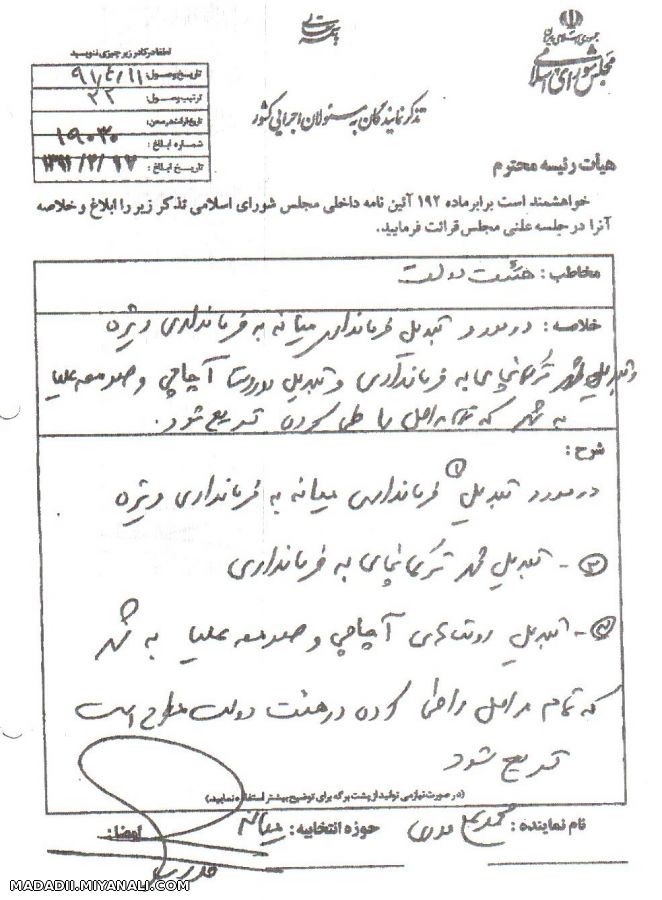 باسمه تعالی
جمهوری اسلامی ایران
مجلس شورای اسلامی
تذکر نمایندگان به مسئولان اجرایی کشور
لطفا در کادر زیر چیزی ننویسید
تاریخ وصول: ۹۱/۴/۱۱
ترتیب وصول: ۲۲
تاریخ قرائت در صحن:
شماره ابلاغ: ۱۹۰۳۰
تاریخ ابلاغ:
هیأت رئیسه محترم
خواهشمند است برابر ماده ۱۹۲ آئین نامه داخلی مجلس شورای اسلامی تذکر زیر را ابلاغ و خلاصه
آنرا در جلسه علنی مجلس قرائت فرمایید.
مخاطب: هئیت دولت
خلاصه: در مورد تبدیل فرمانداری میانه به فرمانداری ویژه
و تبدیل شهر ترکمانچای به فرمانداری و تبدیل آچاچی و صومعه علیا
به شهر که مراحل را طی کرده تسریع شود.
شرح:
در مورد تبدیل ۱ فرمانداری میانه به فرمانداری ویژه
۲- تبدیل شهر ترکمانچای به فرمانداری
۳- تبدیل روستاهای آچاچی و صومعه علیا به شهر
که تمام مراحل را طی کرده در هئیت دولت مطرح است
تسریع شود
(در صورت نیاز می توانید از پشت برگه برای توضیح بیشتر استفاده نمایید.)
نام نماینده: حوزه انتخابیه: میانه امضاء:
MADADII.MIYANALI.COM